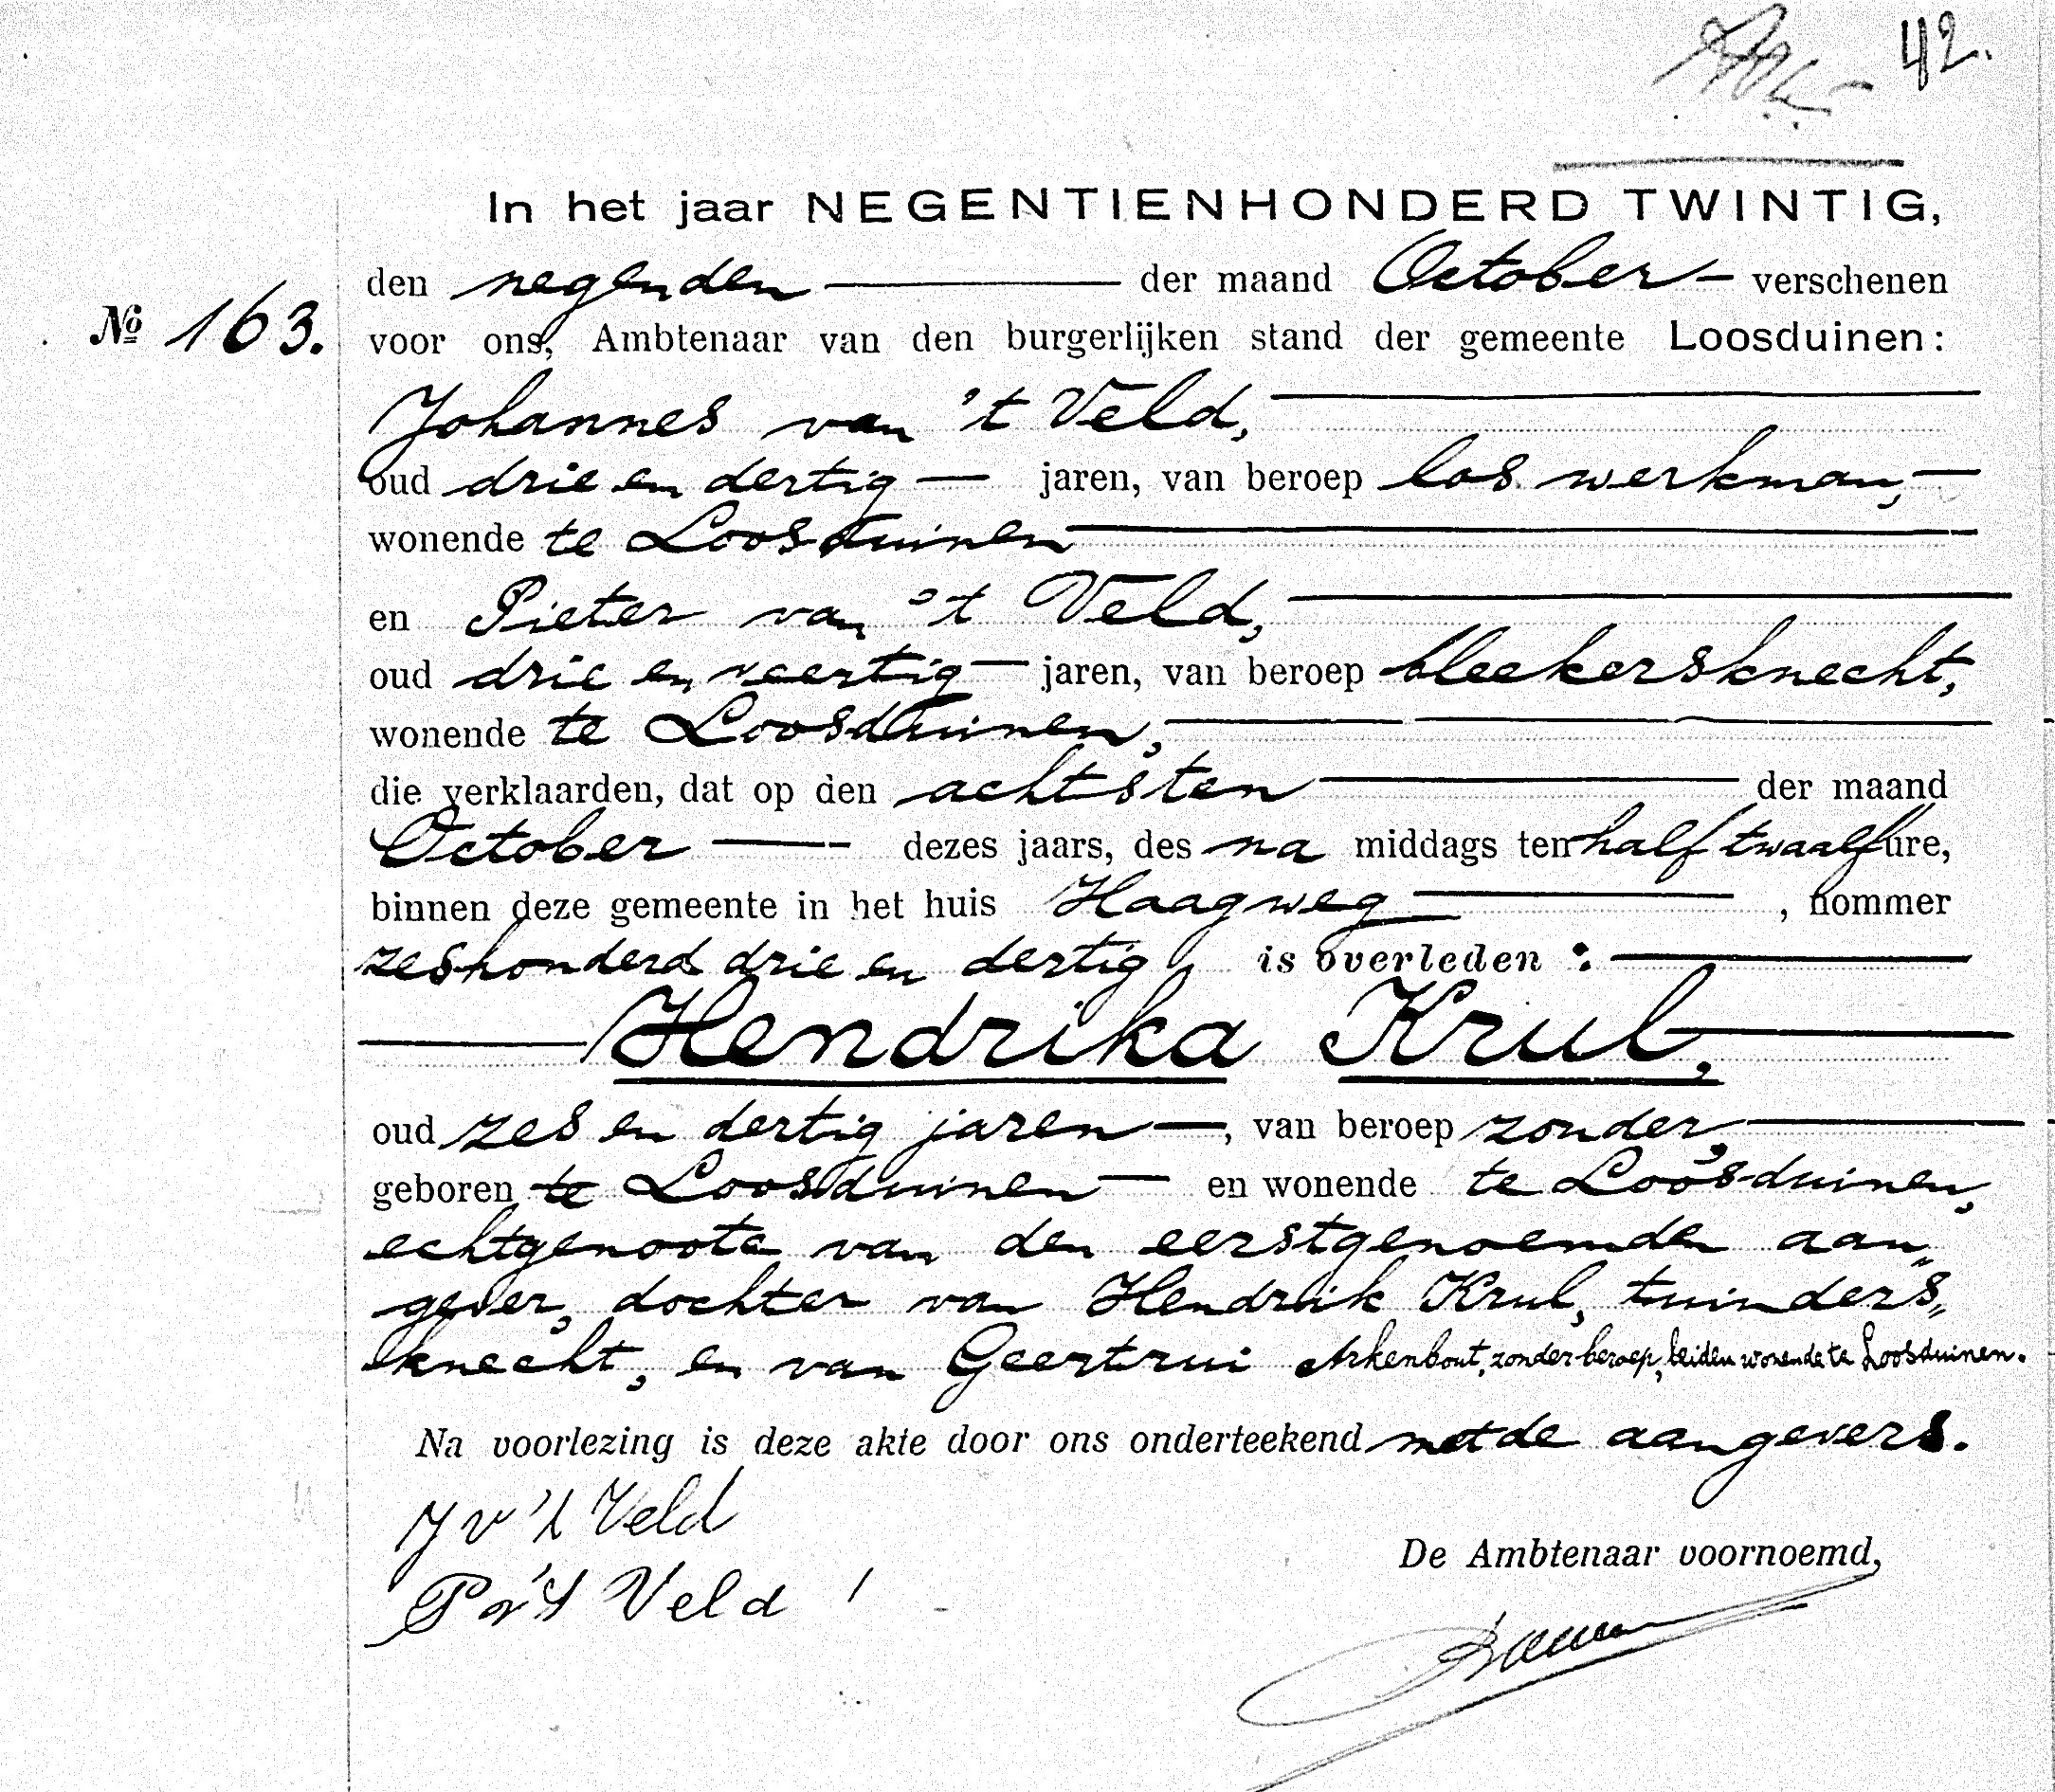 42.
In het jaar NEGENTIENHONDERD TWINTIG,
den negenden der maand October verschenen
No 163.
voor ons, Ambtenaar van den burgerlijken stand der gemeente Loosduinen:
Johannes van 't Veld,
oud drie en dertig jaren, van beroep los werkman,
wonende te Loosduinen
en Pieter van 't Veld,
oud drie en veertig jaren, van beroep bleekersknecht,
wonende te Loosduinen,
die verklaarden, dat op den achtsten der maand
October dezes jaars, des na middags ten half twaalf ure,
binnen deze gemeente in het huis Haagweg, nommer
zeshonderd drie en dertig, is overleden:
Hendrika Krul,
oud zes en dertig jaren, van beroep zonder,
geboren te Loosduinen en wonende te Loosduinen,
echtgenoote van den eerstgenoemden aan„
gever, dochter van Hendrik Krul, tuinders„
knecht, en van Geertrui Arkenbout, zonder beroep, beiden wonende te Loosduinen.
Na voorlezing is deze akte door ons onderteekend met de aangevers.
J v 't Veld
P v 't Veld
De Ambtenaar voornoemd,